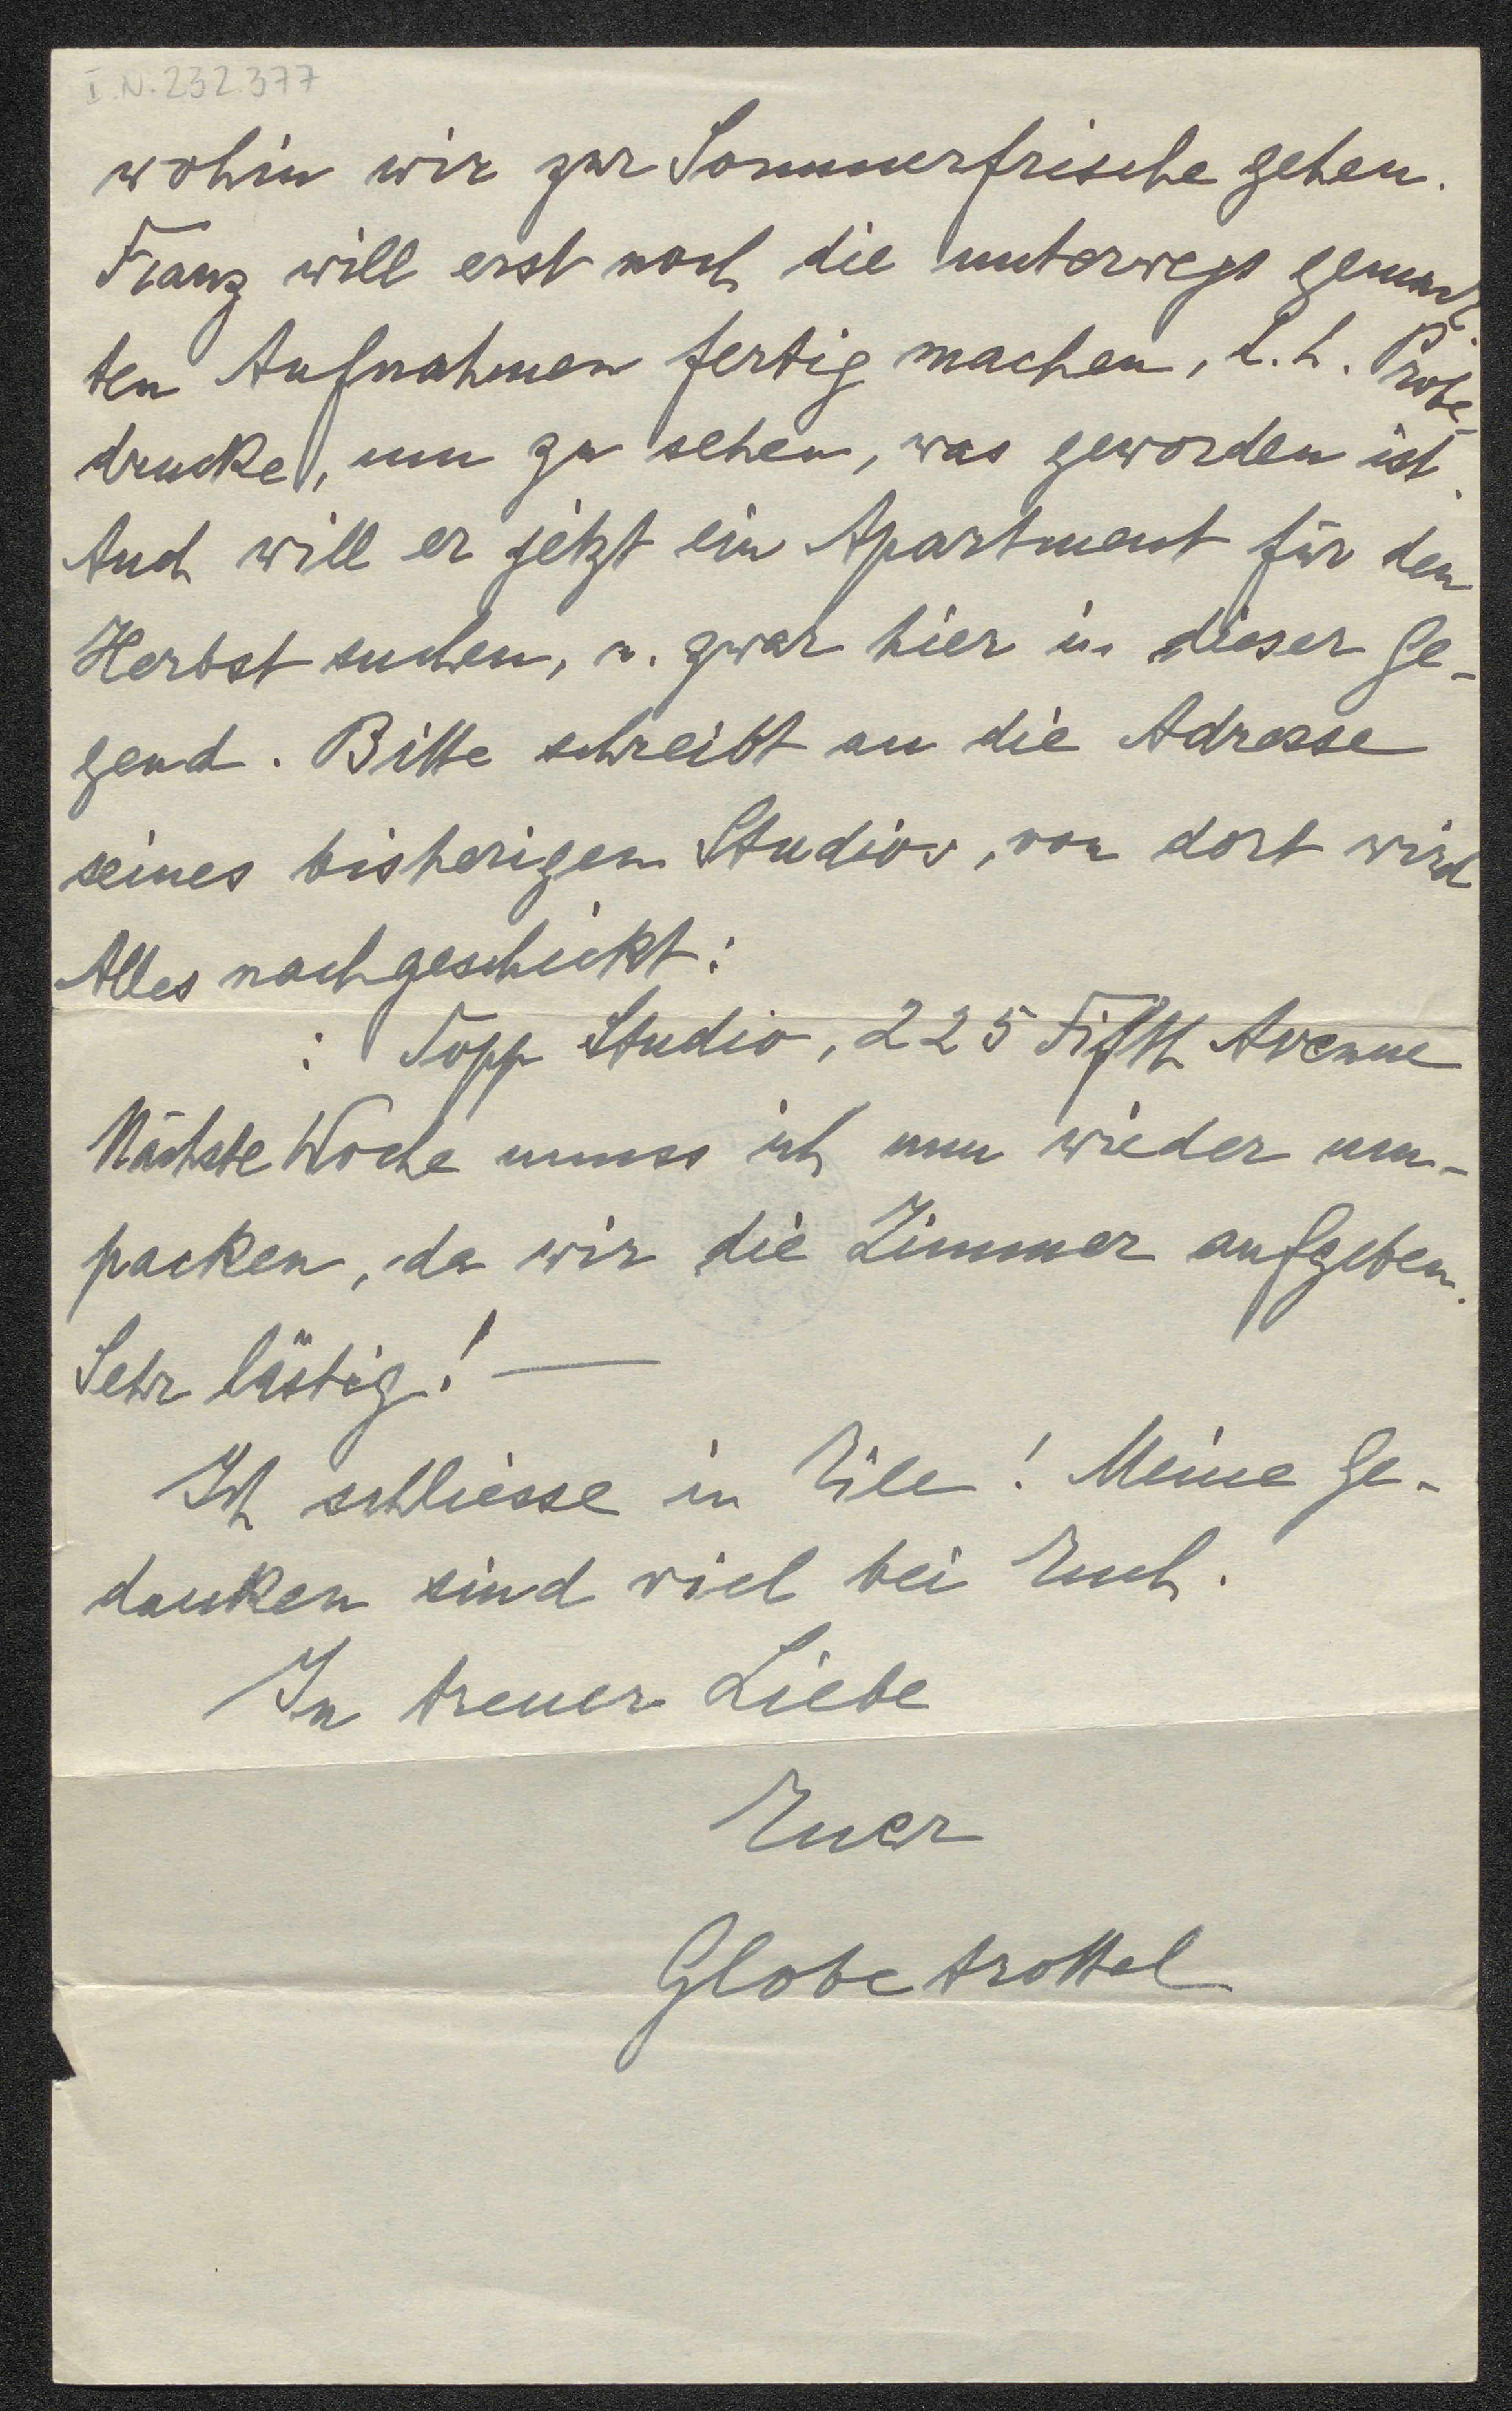 I.N. 232.377
wohin wir zur Sommerfrische gehen.
Franz will erst noch die unterwegs gemach-
ten Aufnahmen fertig machen, d. h. Probe-
drucke, um zu sehen, was geworden ist.
Auch will er jetzt ein Apartment für den
Herbst suchen, u. zwar hier in dieser Ge-
gend. Bitte schreibt an die Adresse
seines bisherigen Studios, von dort wird
Alles nachgeschickt:
: Topp Studio, 225 Fifth Avenue
Nächste Woche muss ich nun wieder um-
packen, da wir die Zimmer aufgeben.
Sehr lästig! —
Ich schliesse in Eile! Meine Ge-
danken sind viel bei Euch.
In treuer Liebe
Euer
Globetrottel